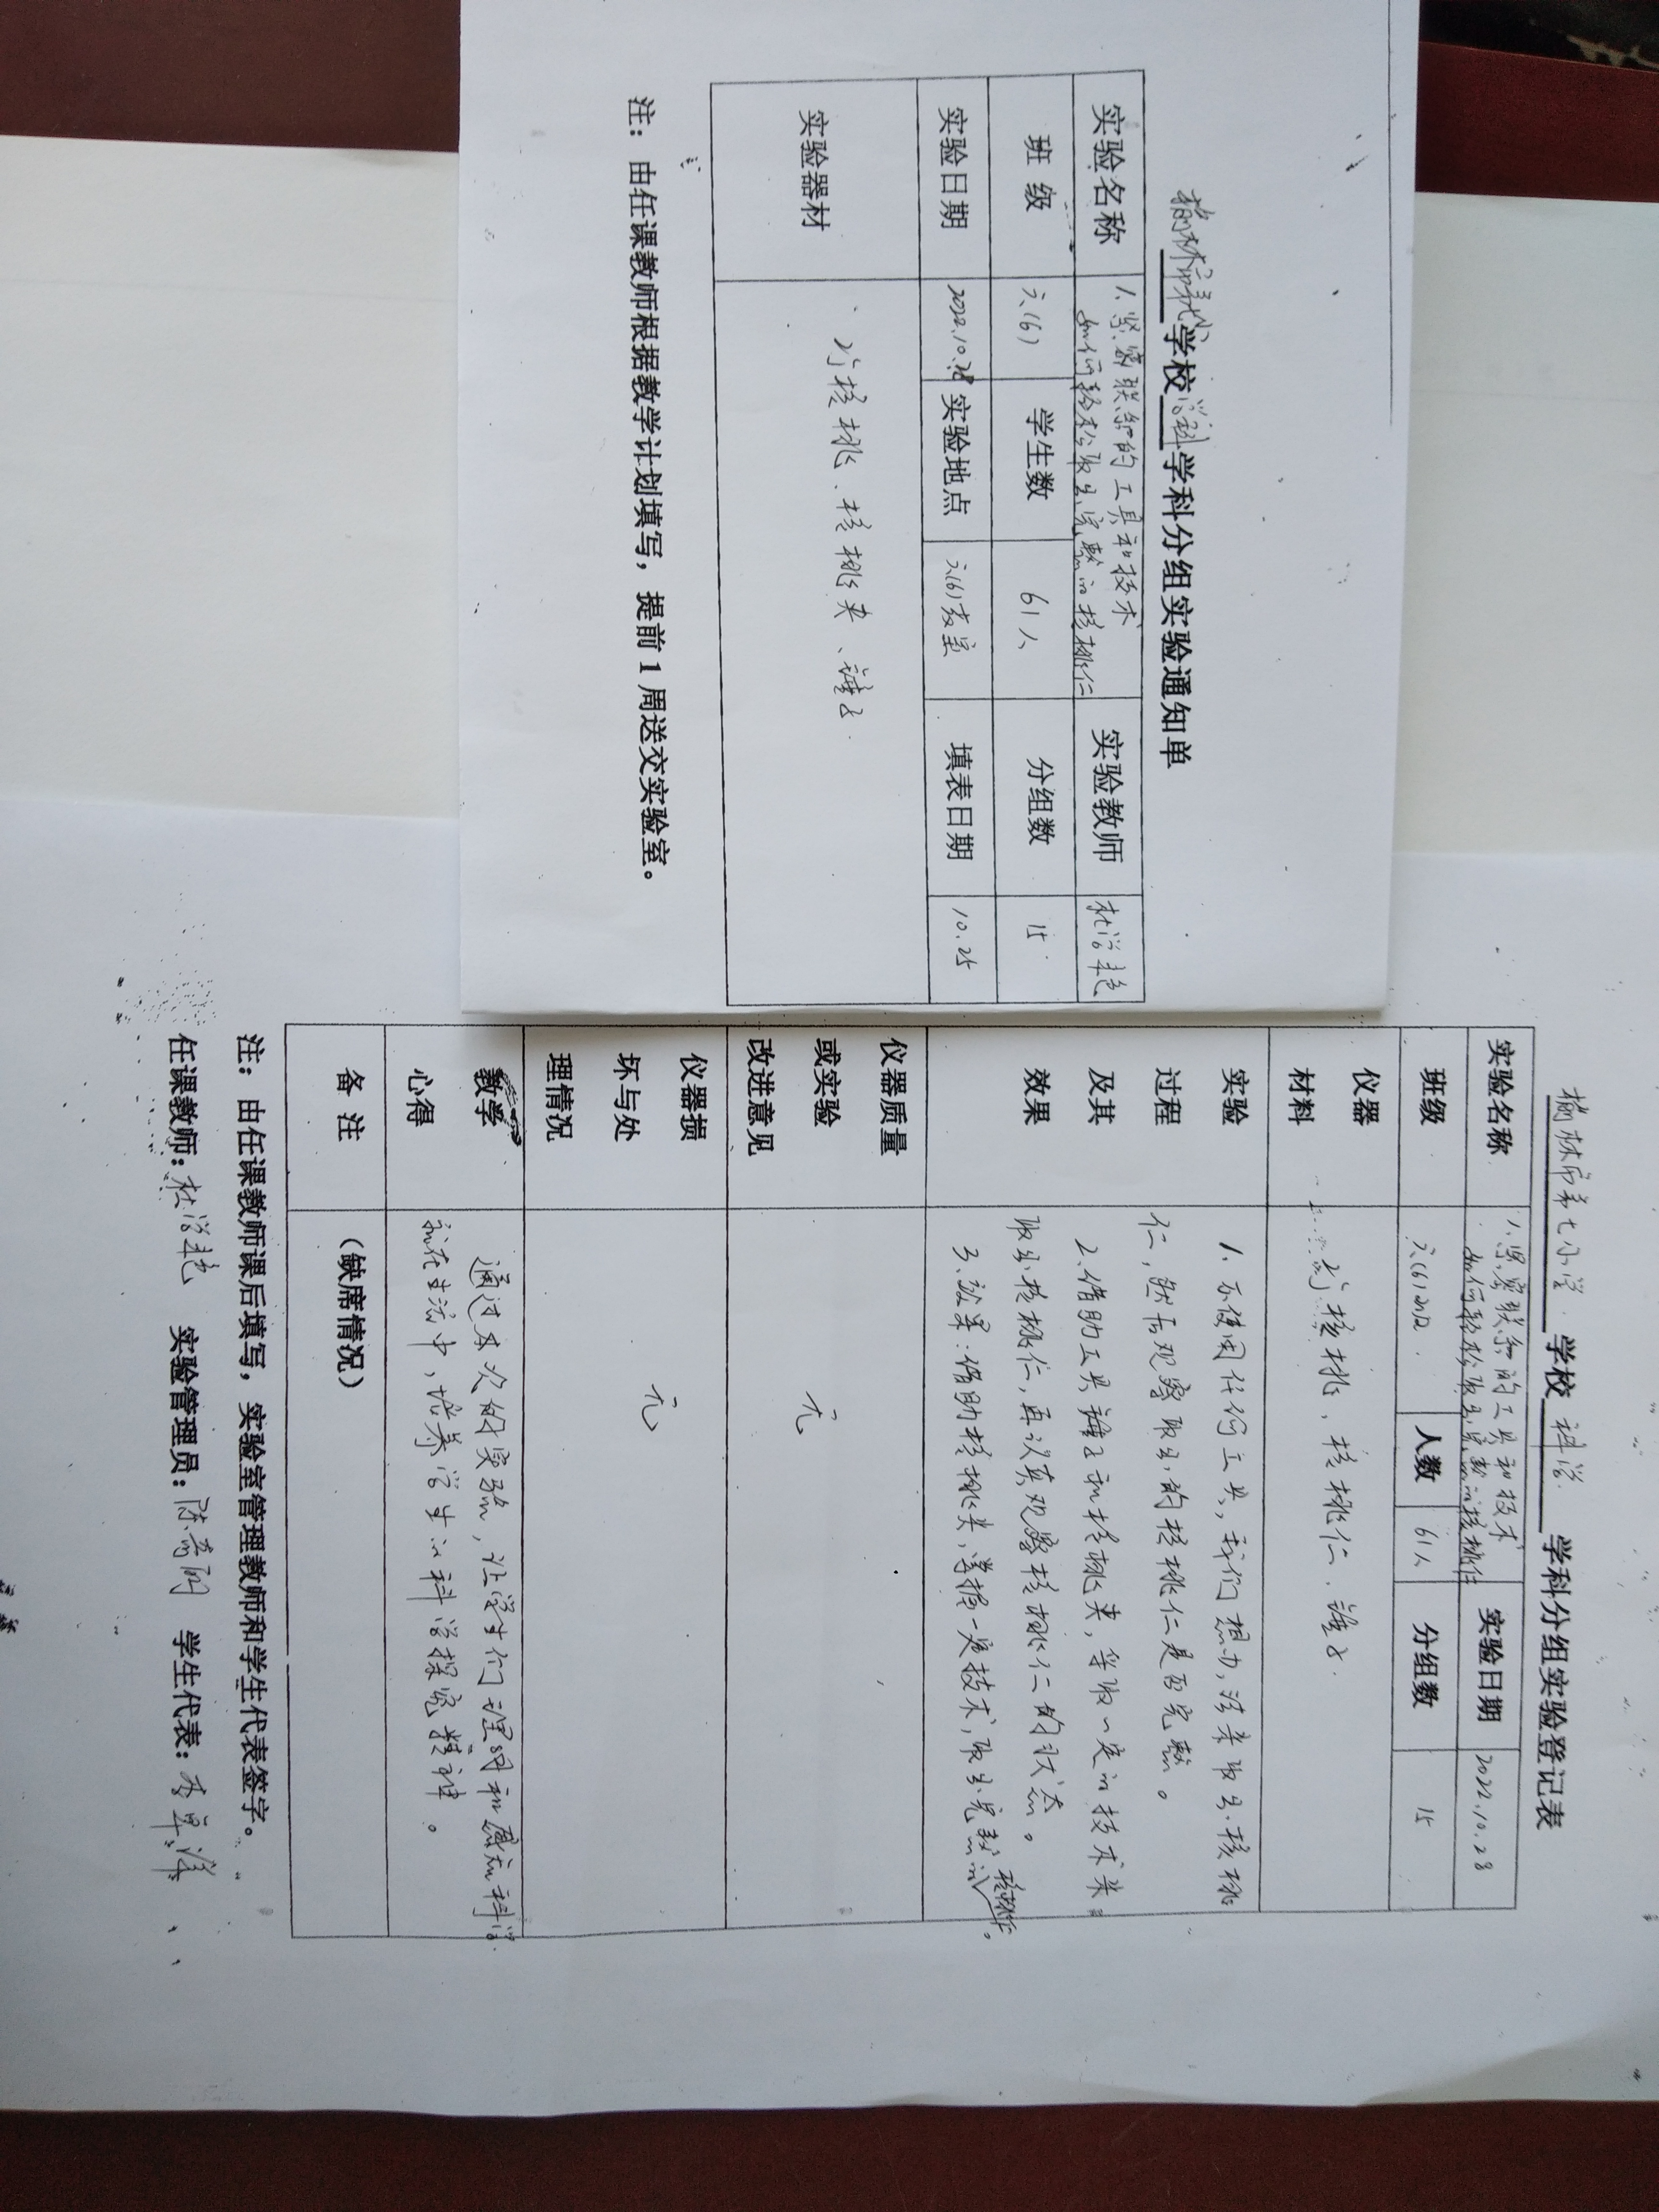 榆林市第七小学校 科学 学科分组实验通知单
实验名称 1、紧密联系的工具和技术 实验教师
如何轻松取出完整的核桃仁
班 级 六(6) 学生数 61人 分组数 15
实验日期 2022.10.28 实验地点 六(6)教室 填表日期 10.25
实验器材 核桃、核桃夹、锤子.
注：由任课教师根据教学计划填写，提前1周送交实验室。
榆林市第七小学. 学校 科学 学科分组实验登记表
实验名称 1、紧密联系的工具和技术 实验日期 2022.10.28
如何轻松取出完整的核桃仁
班级 六(6)班. 人数 61人 分组数 15
仪器
材料
核桃、核桃仁.锤子.
实验
过程
及其
效果
1、不使用任何工具，我们想办法来取出核桃
仁，然后观察取出的核桃仁是否完整。
2、借助工具锤子和核桃夹，采取一定的技术来
取出核桃仁，再认真观察核桃仁的状态。
3、效果：借助核桃夹，掌握一定技术，取出完整的核桃仁。
仪器质量
或实验
改进意见
无
仪器损
坏与处
理情况
无
教学
心得
通过本次的实验，让学生们理解和感知科学.
就在生活中，培养学生的科学探究精神。
备 注 （缺席情况）
注：由任课教师课后填写，实验室管理教师和学生代表签字。
任课教师： 实验管理员： 学生代表：